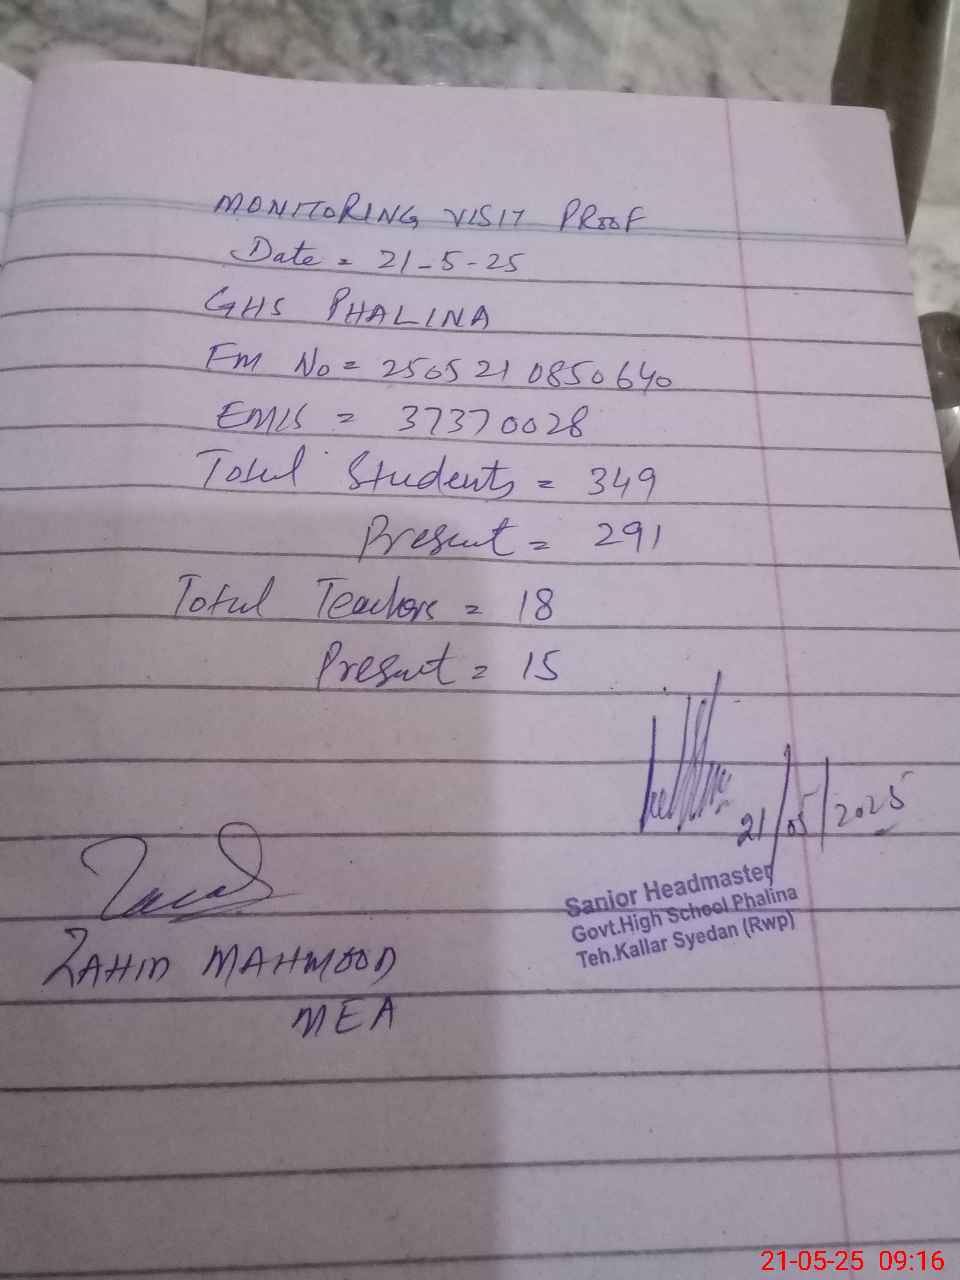 MONITORING VISIT PROOF
Date = 21-5-25
GHS PHALINA
FM No = 2505210850640
EMIS = 37370028
Total Students = 349
Present = 291
Total Teachers = 18
Present = 15
21/05/2025
Sanior Headmaster
Govt.High School Phalina
Teh.Kallar Syedan (Rwp)
ZAHID MAHMOOD
MEA
21-05-25 09:16